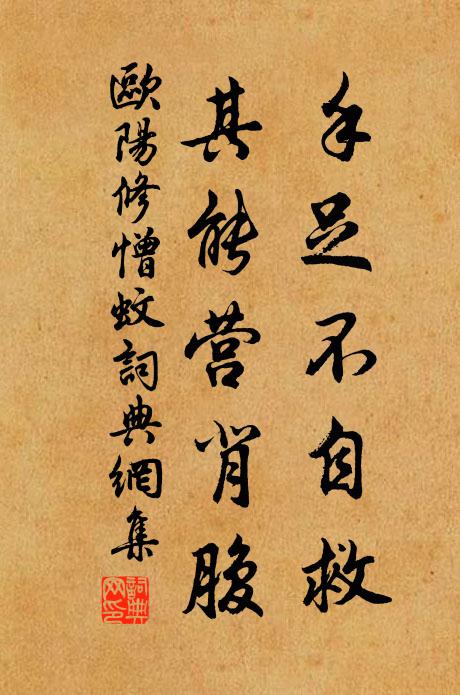 手足不自救
其能营背腹
歐陽修憎蚊詞典網集
詞典网印